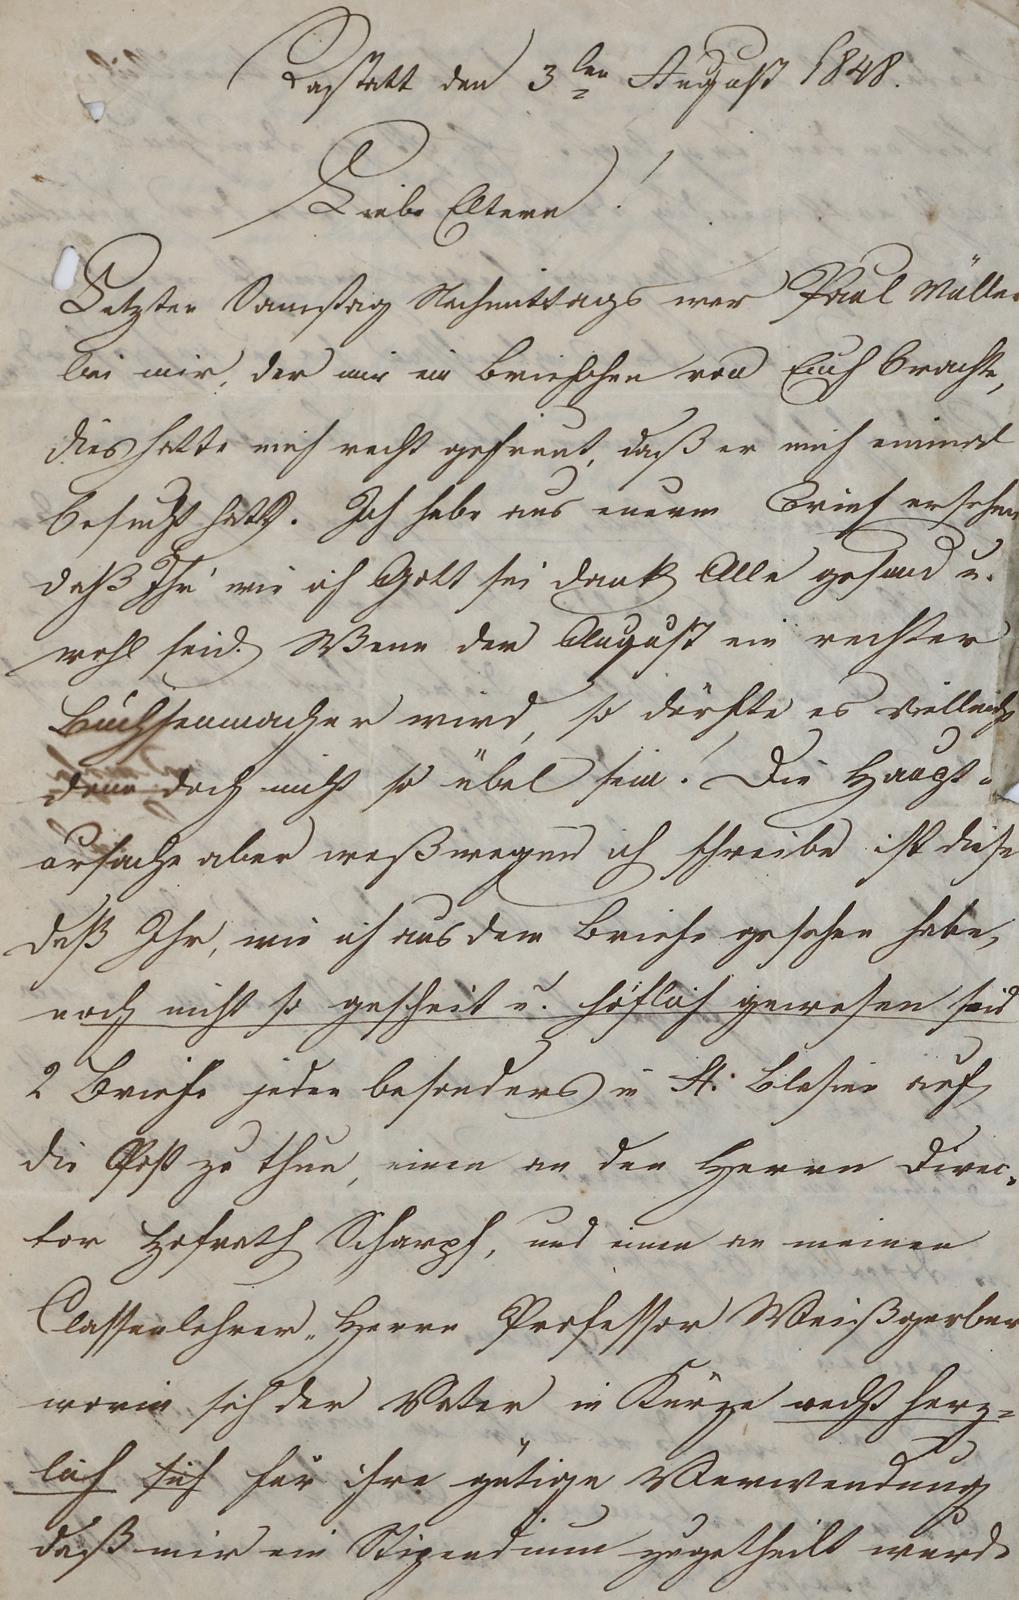 Rastatt den 3ten August 1848.
Liebe Eltern!
Letzten Samstag Nachmittags war Paul Müller
bei mir, der mir ein Briefchen von Euch brachte,
dies hatte mich recht gefreut, daß er mich einmal
besucht hatte. Ich habe aus euerm Brief ersehen
daß Ihr wie ich Gott sei dank Alle gesund u.
wohl seid. Wenn der August ein rechter
Büchsenmacher wird, so dürfte es vielleicht
denn doch nicht so übel sein! Die Haupt-
ursache aber weßwegen ich schreibe ist diese
daß Ihr, wie ich aus dem Briefe gesehen habe,
noch nicht so gescheit u. höflich gewesen seid
2 Briefe jeden besonders in St. Blasien auf
die Post zu thun, einen an den Herrn Direc-
tor Hofrath Scharpf, und einen an meinen
Classenlehrer, Herrn Professor Weißgerber
worin sich der Vater in Kürze recht herz-
lich sich für ihre gütige Verwendung
daß mir ein Stipendium zugetheilt wurde